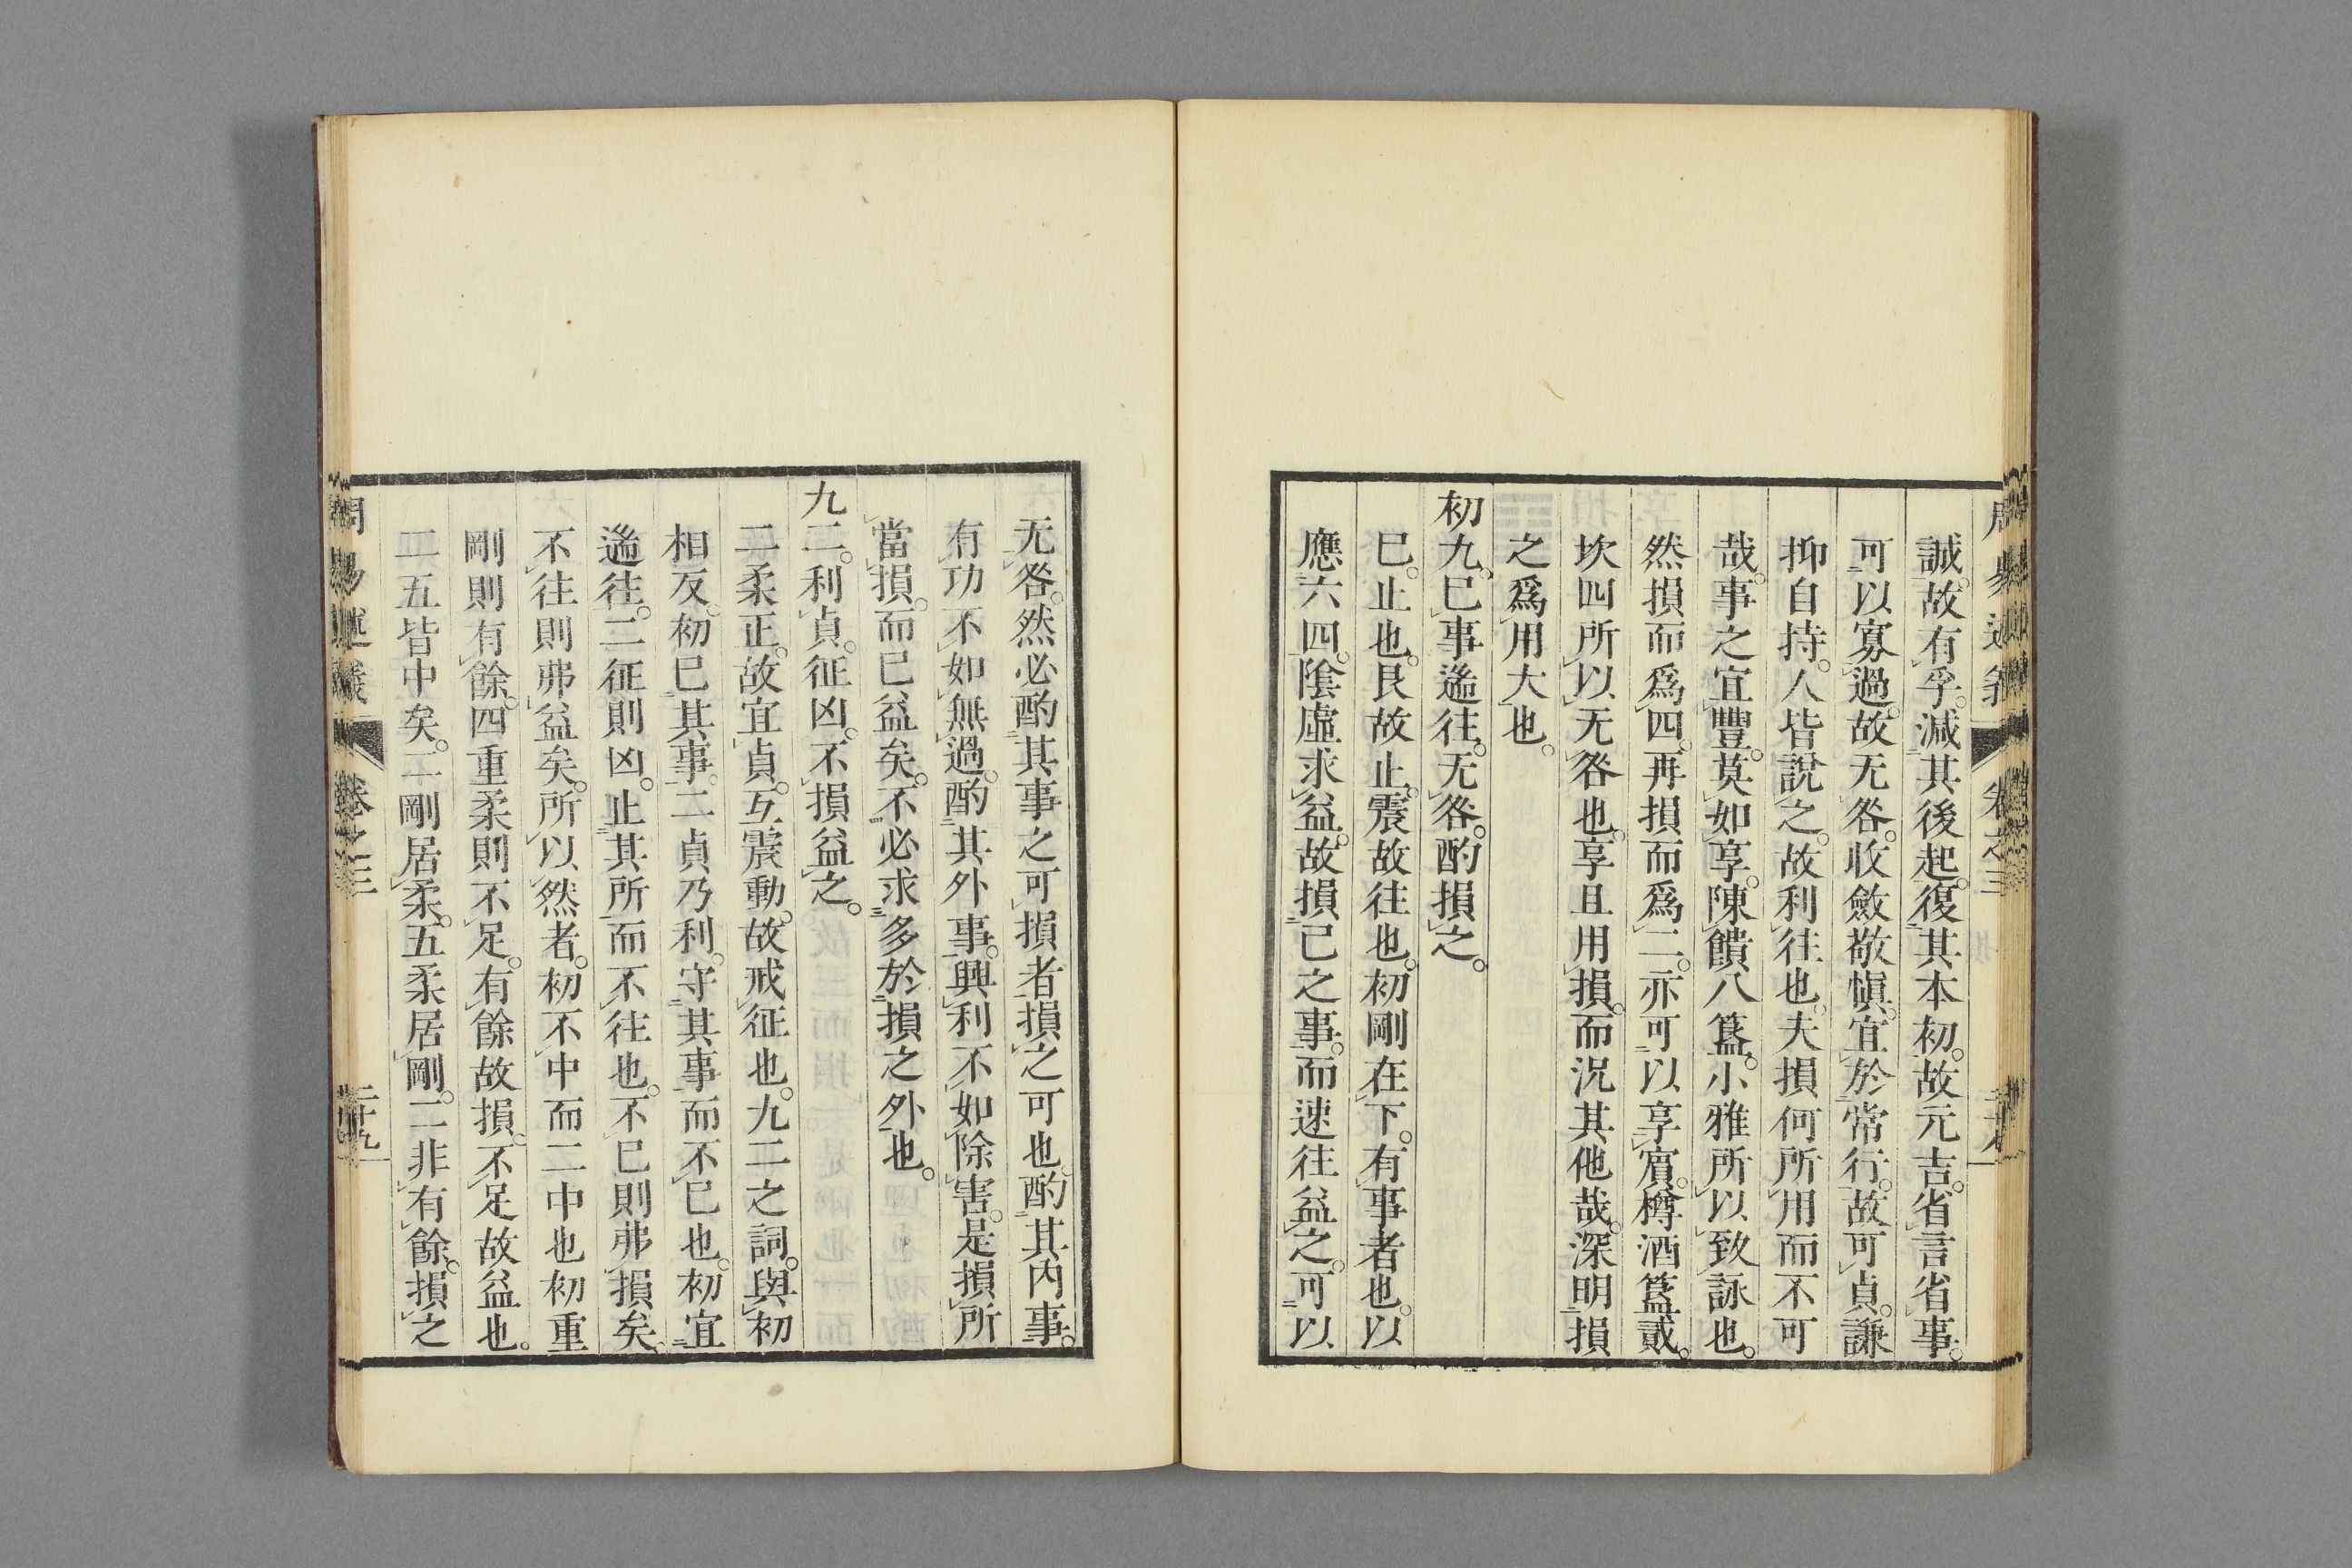 誠故有孚。減其後起。復其本初。故元吉。省言省事。
可以寡過。故无咎。收斂敬愼。宜於常行。故可貞。謙
抑自持。人皆說之。故利往也。夫損何所用而不可
哉。事之宜豐。莫如享。陳饋八簋。小雅所以致詠也。
然損而爲四。再損而爲二。亦可以享賓。樽酒簋貳。
坎四所以无咎也。享且用損。而況其他哉。深明損
之爲用大也。
初九。巳事遄往。无咎。酌損之。
巳。止也。艮故止。震故往也。初剛在下。有事者也。以
應六四。陰虛求益。故損己之事。而速往益之。可以
无咎。然必酌其事之可損者損之可也。酌其内事。
有功不如無過。酌其外事。興利不如除害。是損所
當損。而巳益矣。不必求多於損之外也。
九二。利貞。征凶。不損益之。
二柔正。故宜貞。互震動。故戒征也。九二之詞。與初
相反。初巳其事。二貞乃利。守其事而不巳也。初宜
遄往。二征則凶。止其所而不往也。不巳則弗損矣。
不往則弗益矣。所以然者。初不中而二中也初重
剛則有餘。四重柔則不足。有餘故損。不足故益也。
二五皆中矣。二剛居柔。五柔居剛。二非有餘。損之
周易述義 卷之三 二十九